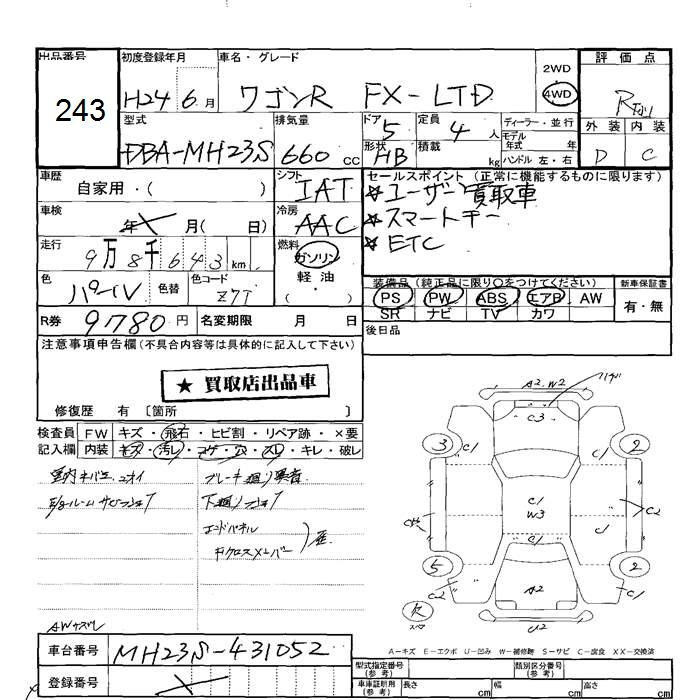 出品番号
243
初度登録年月 車名・グレード
H24 6月 ワゴンR FX-LTD
2WD
4WD
評価点
R
外装 内装
D C
型式 排気量 ドア 定員 ディーラー・並行
DBA-MH23S 660cc 5 4人
形状 HB 積載 kg
モデル年式 年
ハンドル 左・右
車歴
自家用・( )
シフト IAT
車検
年 月( 日)
冷房 AAC
走行
9万8千643km
燃料
ガソリン
軽油
・( )
色 パール 色替 色コード Z7T
R券 9780円 名変期限 月 日
セールスポイント (正常に機能するものに限ります)
☆ユーザー買取車
☆スマートキー
☆ETC
装備品 (純正品に限り○をつけてください) 新車保証書
PS PW ABS エアB AW 有・無
SR ナビ TV カワ
後日品
注意事項申告欄 (不具合内容等は具体的に記入して下さい)
★ 買取店出品車
修復歴 有 〔箇所 〕
検査員 FW キズ・飛石・ヒビ割・リペア跡・×要
記入欄 内装 キズ・汚レ・コゲ・穴・スレ・キレ・破レ
A2.W2
C3
3 C1 C1 2
C1
W3
C2
C1 C1
5 2
C2 A2 C1
U2
A-キズ E-エクボ U-凹み W-補修跡 S-サビ C-腐食 XX-交換済
車台番号 MH23S-431052
登録番号
型式指定番号 (参考) 類別区分番号 (参考)
車庫証明用 (参考) 長さ cm 幅 cm 高さ cm